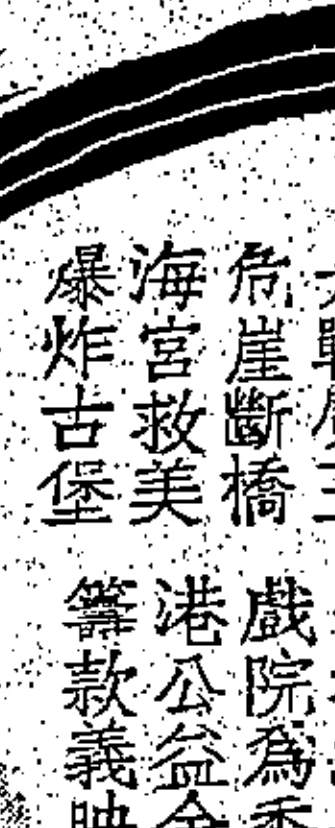 危崖斷橋
海宮救美
爆炸古堡
戲院爲香
港公益金
籌款義映